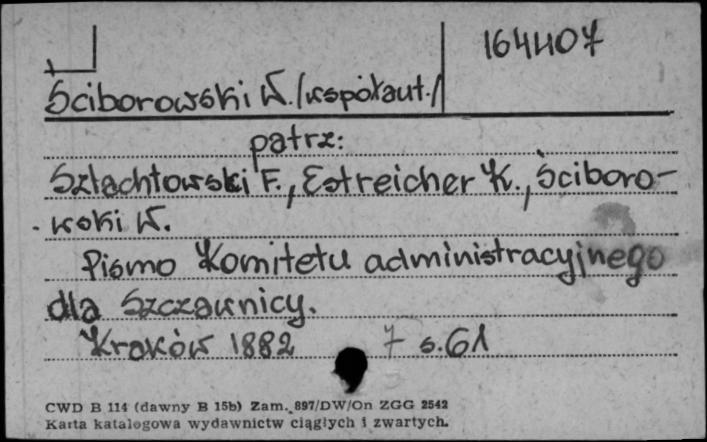 164407
Ściborowski W. /współaut./
patrz:
Szlachtowski F., Estreicher K., Ściboro-
wski W.
Pismo Komitetu administracyjnego
dla Szczawnicy.
Kraków 1882 7 s. 61
CWD B 114 (dawny B 15b) Zam. 897/DW/On ZGG 2542
Karta katalogowa wydawnictw ciągłych i zwartych.